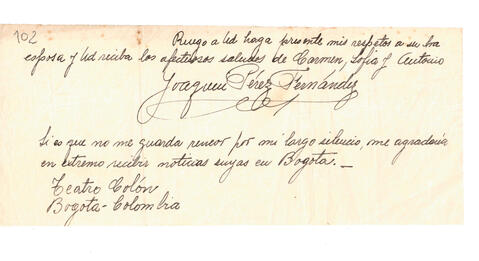 102
Ruego a Ud haga presente mis respetos a su Sra
esposa y Ud reciba los afectuosos saludos de Carmen, Sofia y Antonio
Joaquin Pérez Fernández
Si es que no me guarda rencor por mi largo silencio, me agradaría
en extremo recibir noticias suyas en Bogota. _
Teatro Colón
Bogota - Colombia